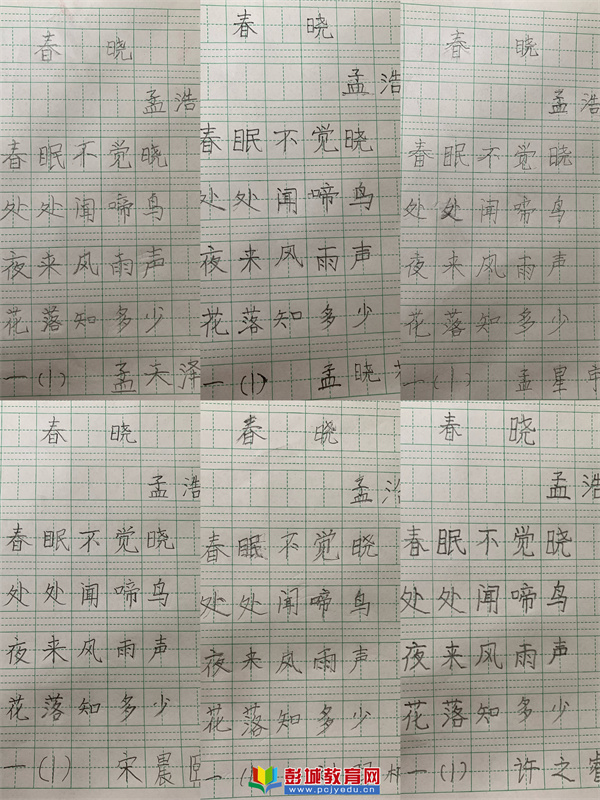 春 晓
孟浩
春眠不觉晓
处处闻啼鸟
夜来风雨声
花落知多少
一(1) 孟来泽
春 晓
孟浩
春眠不觉晓
处处闻啼鸟
夜来风雨声
花落知多少
一(1) 孟晓
春 晓
孟浩
春眠不觉晓
处处闻啼鸟
夜来风雨声
花落知多少
一(1) 孟星宇
春 晓
孟浩
春眠不觉晓
处处闻啼鸟
夜来风雨声
花落知多少
一(1) 宋晨
春 晓
孟浩
春眠不觉晓
处处闻啼鸟
夜来风雨声
花落知多少
一(1)
春 晓
孟浩
春眠不觉晓
处处闻啼鸟
夜来风雨声
花落知多少
一(1) 许之睿
彭城教育网
www.pcjyedu.cn